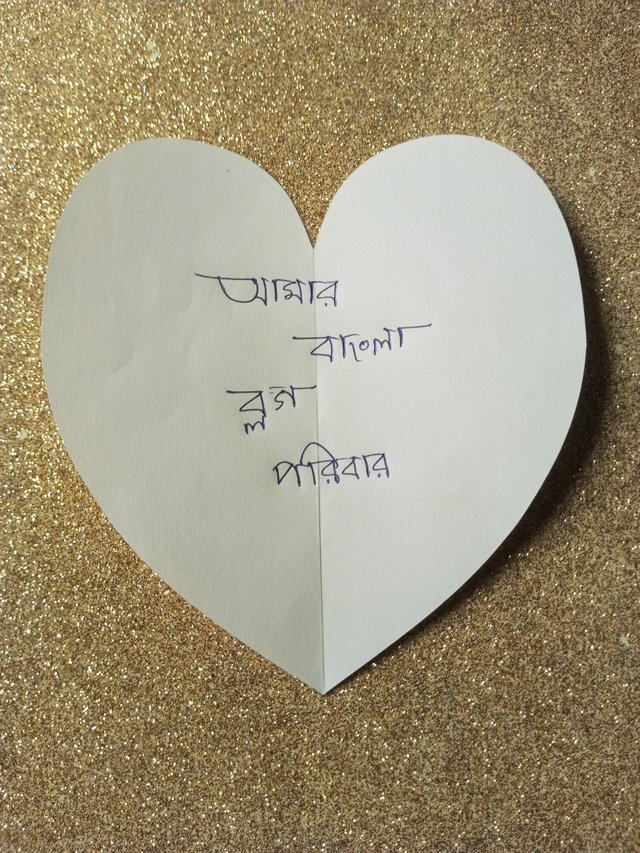 আমার
বাংলা
ব্লগ
পরিবার